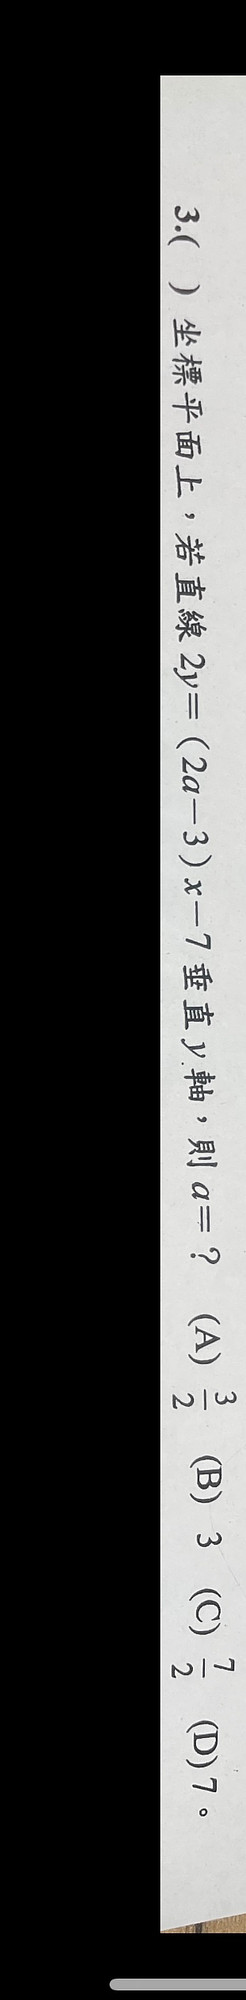 3.(　) 坐標平面上，若直線 2y=(2a−3)x−7 垂直 y 軸，則 a=？ (A) 3/2 (B) 3 (C) 7/2 (D) 7。